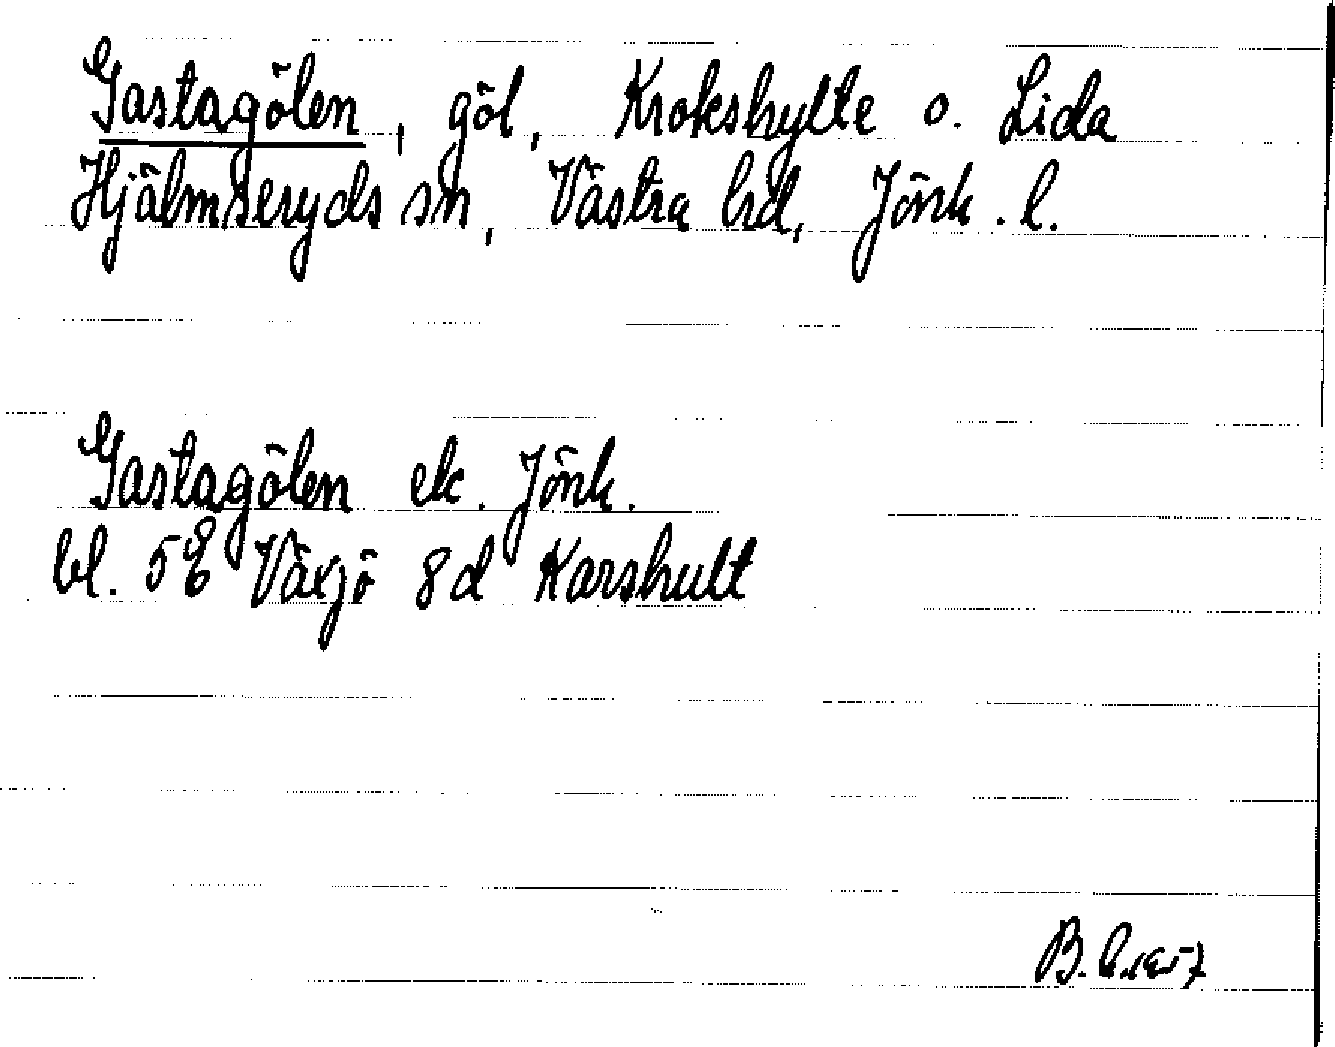 Gastagölen, göl, Krokshylte o. Lida
Hjälmseryds sn, Västra hd, Jönk. l.
Gastagölen ek. Jönk.
bl. 5E Växjö 8d Karshult
B.